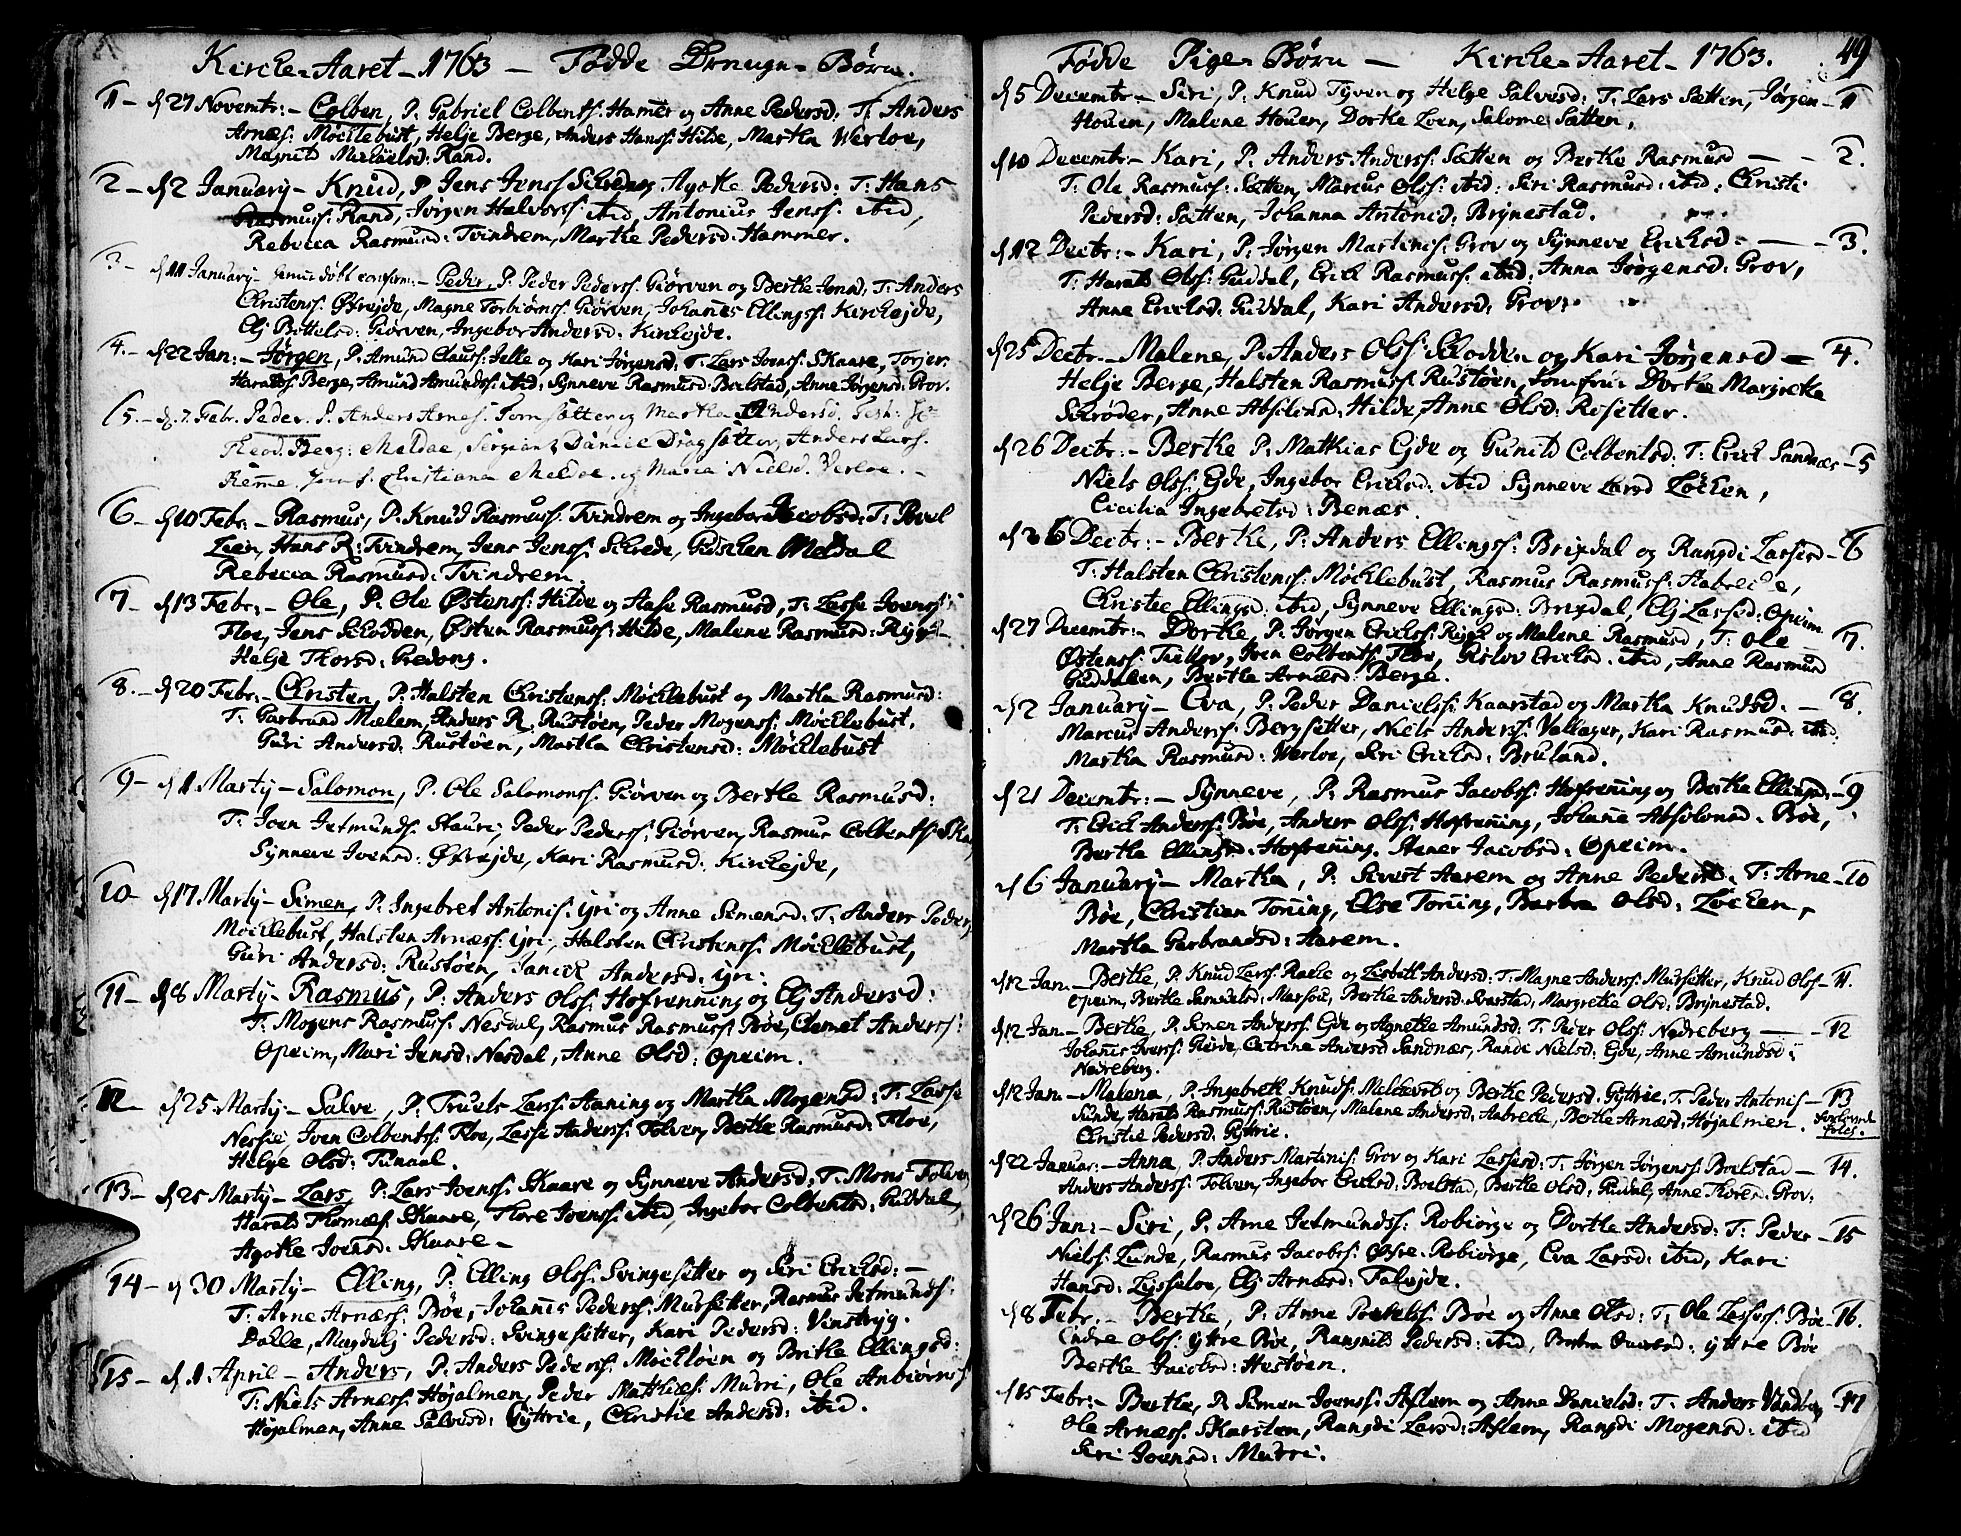 Kirche-Aaret-1763 - Fødde Drenge-Børn.
1 - d 27 Novembr:- Colben, P. Gabriel Colbents: Hamer og Anne Pedersd: T: Anders
Arnæs: Möcklebust, Helje Berge, Anders Hanss: Hilde, Martha Werloe,
Magnild Michäelsd: Rand.
2 - d 2 January - Knud, P Jens Jenss Schrøder, Agothe Pedersd: T: Hans
Rasmuss: Rand, Jørgen Halvorss: ibid, Antonius Jenss: ibid,
Rebecca Rasmusd: Tvindrem, Marthe Pedersd: Hammer.
3 - d 11 January - hiemmedøbt confirm:- Peder, P. Peder Pederss: Giörven og Berthe Jonsd, T: Anders
Christenss: Øfrejde, Magne Torbiørns: Giörven, Johanes Ellingss: Kirchejde,
Elj Bottelsd: Giørven, Ingebor Andersd: Kirchejde.
4. - d 22 Jan:- Jörgen, P. Amund Clauss: Jelle og Kari Jörgensd: T: Lars Joenss: Skaare, Torjer
Haralss: Berge, Amund Amundss: ibid, Synneve Rasmusd: Boelstad, Anne Jörgensd: Grov.
5. - d. 7. Febr. Peder. P. Anders Arnes: Tornsætter og Martha Andersd. Test:
Theod. Berg: Meldae, Sergiant Daniel Dragsætter, Anders Larss.
Remme. Jomf. Christiana Meldae. og Maria Nielsd. Verloe. -
6 - d 10 Febr: - Rasmus, P. Knud Rasmuss: Tvindrem og Ingebor Jacobsd: T: Povel
Loen, Hans R: Tvindrem, Jens Jenss: Schrøder, Gidschen Meldal
Rebecca Rasmusd: Tvindrem.
7 - d 13 Febr:- Ole, P: Ole Østenss: Hilde og Aase Rasmusd, T: Lasse Joenss:
Floe, Jens Schodden, Østen Rasmuss: Hilde, Malene Rasmusd: Rygg-
Helje Thorsd: Gredong.
8. - d 20 Febr:- Christen, P: Halsten Christenss: Möcklebust og Martha Rasmusd:
T: Garbrand Mælem, Anders R: Rustöen, Peder Mogenss: Möcklebust,
Guri Andersd: Rustöen, Martha Christensd: Möcklebust
9 - d 1. Marty - Salomon, P. Ole Salomons: Giörven og Berthe Rasmusd:
T: Joen Jetmundss: Stauri, Peder Pederss: Giörven, Rasmus Colbentss: Ska
Synneve Joensd: Øfrejde, Kari Rasmusd: Kirchejde,
10 - d 17 Marty - Simen, P. Ingebret Antonis: Yri og Anne Simensd: T: Anders Peders
Möcklebust, Halsten Arnæss: Yri, Halsten Christenss: Möcklebust,
Guri Andersd: Rustöen, Janich Andersd: Yri:
11 - d 8 Marty - Rasmus, P: Anders Olss: Hofrenning og Elj Andersd:
T: Mogens Rasmuss: Nesdal, Rasmus Rasmuss: Böe, Clemet Anderss:
Opeim, Mari Jensd: Nesdal, Anne Olsd: Opeim.
12 - d 25 Marty - Salve, P: Truels Larss: Aaning og Martha Mogensd: T: Lasse
Nessie, Joen Colbentss: Floe, Lasse Anderss: Tolven, Berthe Rasmusd: Floe,
Helge Olsd: Tunaal.
13 - d 25 Marty - Lars, P: Lars Joenss: Skaare og Synneve Andersd: T: Mons Tolven
Harald Thomæs: Skaare, Thore Joenss: ibid, Ingebor Colbentsd: Guddal,
Agothe Joensd: Skaare -
14 - d 30 Marty - Elling, P: Elling Olss: Svingesetter og Siri Erichsd: -
T: Arne Arnæs: Böe, Johanes Pederss: Mursetter, Rasmus Jetmundss:
Dahle, Magdelj Pedersd: Svingesetter, Kari Pedersd: Vinstryg.
15 - d. 1 April - Anders, P: Anders Pederss: Möcklöen og Brithe Ellingsd:
T: Niels Arnæss: Højalmen, Peder Matthiæs: Murri, Ole Anbiörns
Højalmen, Anne Salvesd: Gÿttrie, Christie Andersd: ibid.
Fødde Pige-Børn - Kirche-Aaret - 1763. 49
d 5 Decembr - Siri, P: Knud Tyven og Helge Salvesd: T: Lars Sætten, Jørgen - 1
Houen, Malene Houen, Dorthe Loen, Salome Sætten,
d 10 Decembr - Kari, P: Anders Anderss: Sætten og Berthe Rasmusd - - 2.
T: Ole Rasmuss: Sætten, Marcus Olss: ibid: Siri Rasmusd: ibid: Christi
Pedersd: Sætten, Johanna Antonisd: Brynestad.
d 12 Decbr:- Kari, P: Jörgen Martinis: Grov og Synneve Erichsd - - 3.
T: Harald Olss: Guddal, Erich Rasmuss: ibid: Anna Jörgensd: Grov,
Anne Erichsd: Guddal, Kari Andersd: Grov:
d 25 Decbr.- Malene, P. Anders Olss: Schodden og Kari Jörgensd - 4.
Helje Berge, Halsten Rasmuss: Rustöen, Jomfrue Dorthe Margrethe
Schrøder, Anne Absilonsd: Hilde, Anne Olsd: Rosetter.
d 26 Decbr:- Berthe P. Matthias Ejde og Gunild Colbentsd: T: Erich Sandnæs - 5
Niels Olss: Ejde, Ingebor Erichsd: ibid Synneve Larsd Löchen,
Cicilia Ingebretsd: Benæs.
d 26 Decbr:- Berthe, P: Anders Ellingss: Brixdal og Rangdi Lassesd - 6
T: Halsten Christenss: Möcklebust, Rasmus Rasmuss: Aabreche,
Christie Ellingsd: ibid, Synneve Ellingsd: Brixdal, Elj Lassesd: Opeim
d 27 Decembr:- Dorthe, P: Jörgen Erichss: Rygg og Malene Rasmusd, T: Ole - 7.
Østenss: Tiellov, Joen Colbentss: Floe, Gislov Erichsd: ibid, Anne Rasmusd
Guddalen, Bertha Arnæsd: Berge.
d 2 January - Eva, P: Peder Danielss: Kaarstad og Martha Knudsd: - 8.
Marcus Anderss: Bergsetter, Niels Anderss: Vallager, Kari Rasmusd: ibid:
Martha Rasmusd: Werloe, Siri Erichsd: Bruland.
d 21 Decembr: - Synneve, P: Rasmus Jacobss: Hofrening og Bertha Ellingsd: - 9
T: Erich Anderss: Böe, Anders Olss: Hofrening, Johane Absilonsd: Böe,
Bertha Ellingsd: Hofrening, Aaner Jacobsd: Opeim.
d 6 January - Martha, P: Sivert Aarem og Anne Pedersd: T: Arne - 10
Böe, Christian Toning, Else Toning, Barbra Olsd: Löchen,
Martha Garbrandsd: Aarem.
d 12 Jan.- Berthe, P. Knud Larss: Raele og Lisbeth Andersd: T: Magne Anderss: Mursetter, Knud Olss - 11.
Opeim, Berthe Samuelsd: Marsoe, Berthe Andersd: Svarstad, Margrethe Olsd: Brynestad.
d 12 Jan - Berthe, P. Simen Anderss: Ejde og Agnethe Amundsd: T: Peder Olss: Nedreberg - 12
Johanes Iverss: Gierde, Catrine Andersd Sandnæs, Randi Nielsd: Ejde, Anne Amundsd:
Nedreberg.
d 12 Jan. - Malena, P: Ingebreth Knudss: Melchevol og Berthe Pedersd: Gÿttrie, T: Peder Antonis - 13
Sunde, Harald Rasmuss: Rustöen, Malene Andersd: Aabreche, Berthe Arnæsd: Højalmen.
Christie Pedersd: Gÿttrie.
d 22 Januar:- Anna, P. Anders Martinis: Grov og Kari Lassesd: T: Jörgen Jörgenss: Boelstad - 14.
Anders Anderss: Tolven, Ingebor Erichsd: Boelstad, Berthe Olsd: Guddal, Anne Thoresd: Grov:
d 26 Jan:- Siri, P. Arne Jetmundss: Robiörge og Dorthe Andersd: T: Peder - 15
Nielss: Lunde, Rasmus Jacobss: Øfre-Robiörge, Eva Larsd: ibid, Kari
Hansd: Lysseloe, Elj Arnæsd: Tolejde.
d 8 Febr:- Berthe, P: Anne Bottelss: Böe og Anne Olsd: T: Ole Lassess: Böe - 16.
Endre Olss: Yttre Böe, Rangnild Pedersd: ibid, yttre Böe
Berthe Jacobsd: Hestöen.
d 15 Febr:- Berthe, P. Simen Joenss: Aslem og Anne Danielsd: T: Anders - 17
Ole Arnæss: Skarsten, Rangdi Larsd: Aslem, Rangdi Mogensd: ibid
Siri Joensd: Murri.